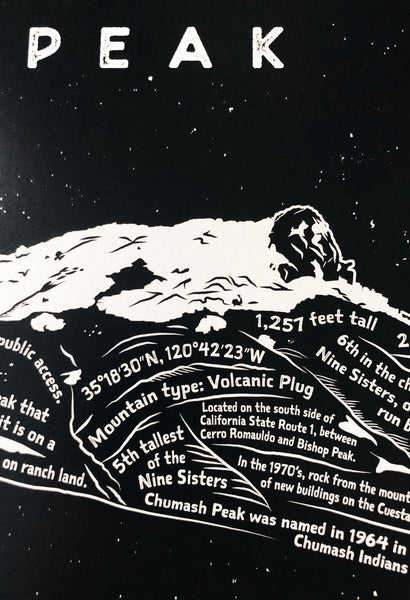 PEAK
1,257 feet tall
2
public access.
35°18'30"N, 120°42'23"W
6th in the
Nine Sisters,
run
that
it is on a
on ranch land.
Mountain type: Volcanic Plug
Located on the south side of
California State Route 1, between
Cerro Romauldo and Bishop Peak.
5th tallest
of the
Nine Sisters
In the 1970's, rock from the
of new buildings on the
Chumash Peak was named in 1964 in
Chumash Indians